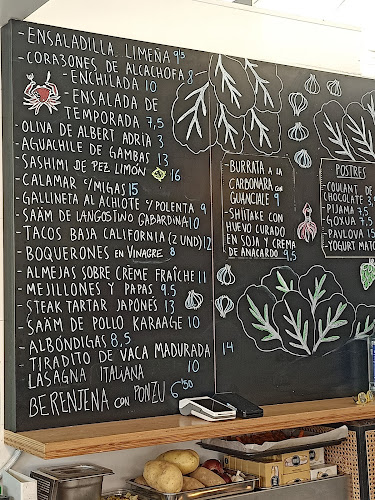 - ENSALADILLA LIMEÑA 9'5
- CORAZONES DE ALCACHOFA 8
- ENCHILADA 10
- ENSALADA DE
TEMPORADA 7,5
- OLIVA DE ALBERT ADRIÀ 3
- AGUACHILE DE GAMBAS 13
- SASHIMI DE PEZ LIMÓN 16
- CALAMAR C/MIGAS 15
- GALLINETA AL ACHIOTE C/POLENTA 9
- SAÄM DE LANGOSTINO GABARDINA 10
- TACOS BAJA CALIFORNIA (2 UND) 12
- BOQUERONES EN VINAGRE 8
- ALMEJAS SOBRE CRÈME FRAÎCHE 11
- MEJILLONES Y PAPAS 9,5
- STEAK TARTAR JAPONÉS 13
- SAÄM DE POLLO KARAAGE 10
- ALBÓNDIGAS 8,5
- TIRADITO DE VACA MADURADA 14
LASAGNA ITALIANA 10
BERENJENA CON PONZU 6'50
- BURRATA A LA
CARBONARA CON
GUANCIALE 9
- SHIITAKE CON
HUEVO CURADO
EN SOJA Y CREMA
DE ANACARDO 9,5
POSTRES
- COULANT DE
CHOCOLATE
- PIJAMA 7,5
- GOXUA 7,5
- PAVLOVA
- YOGURT